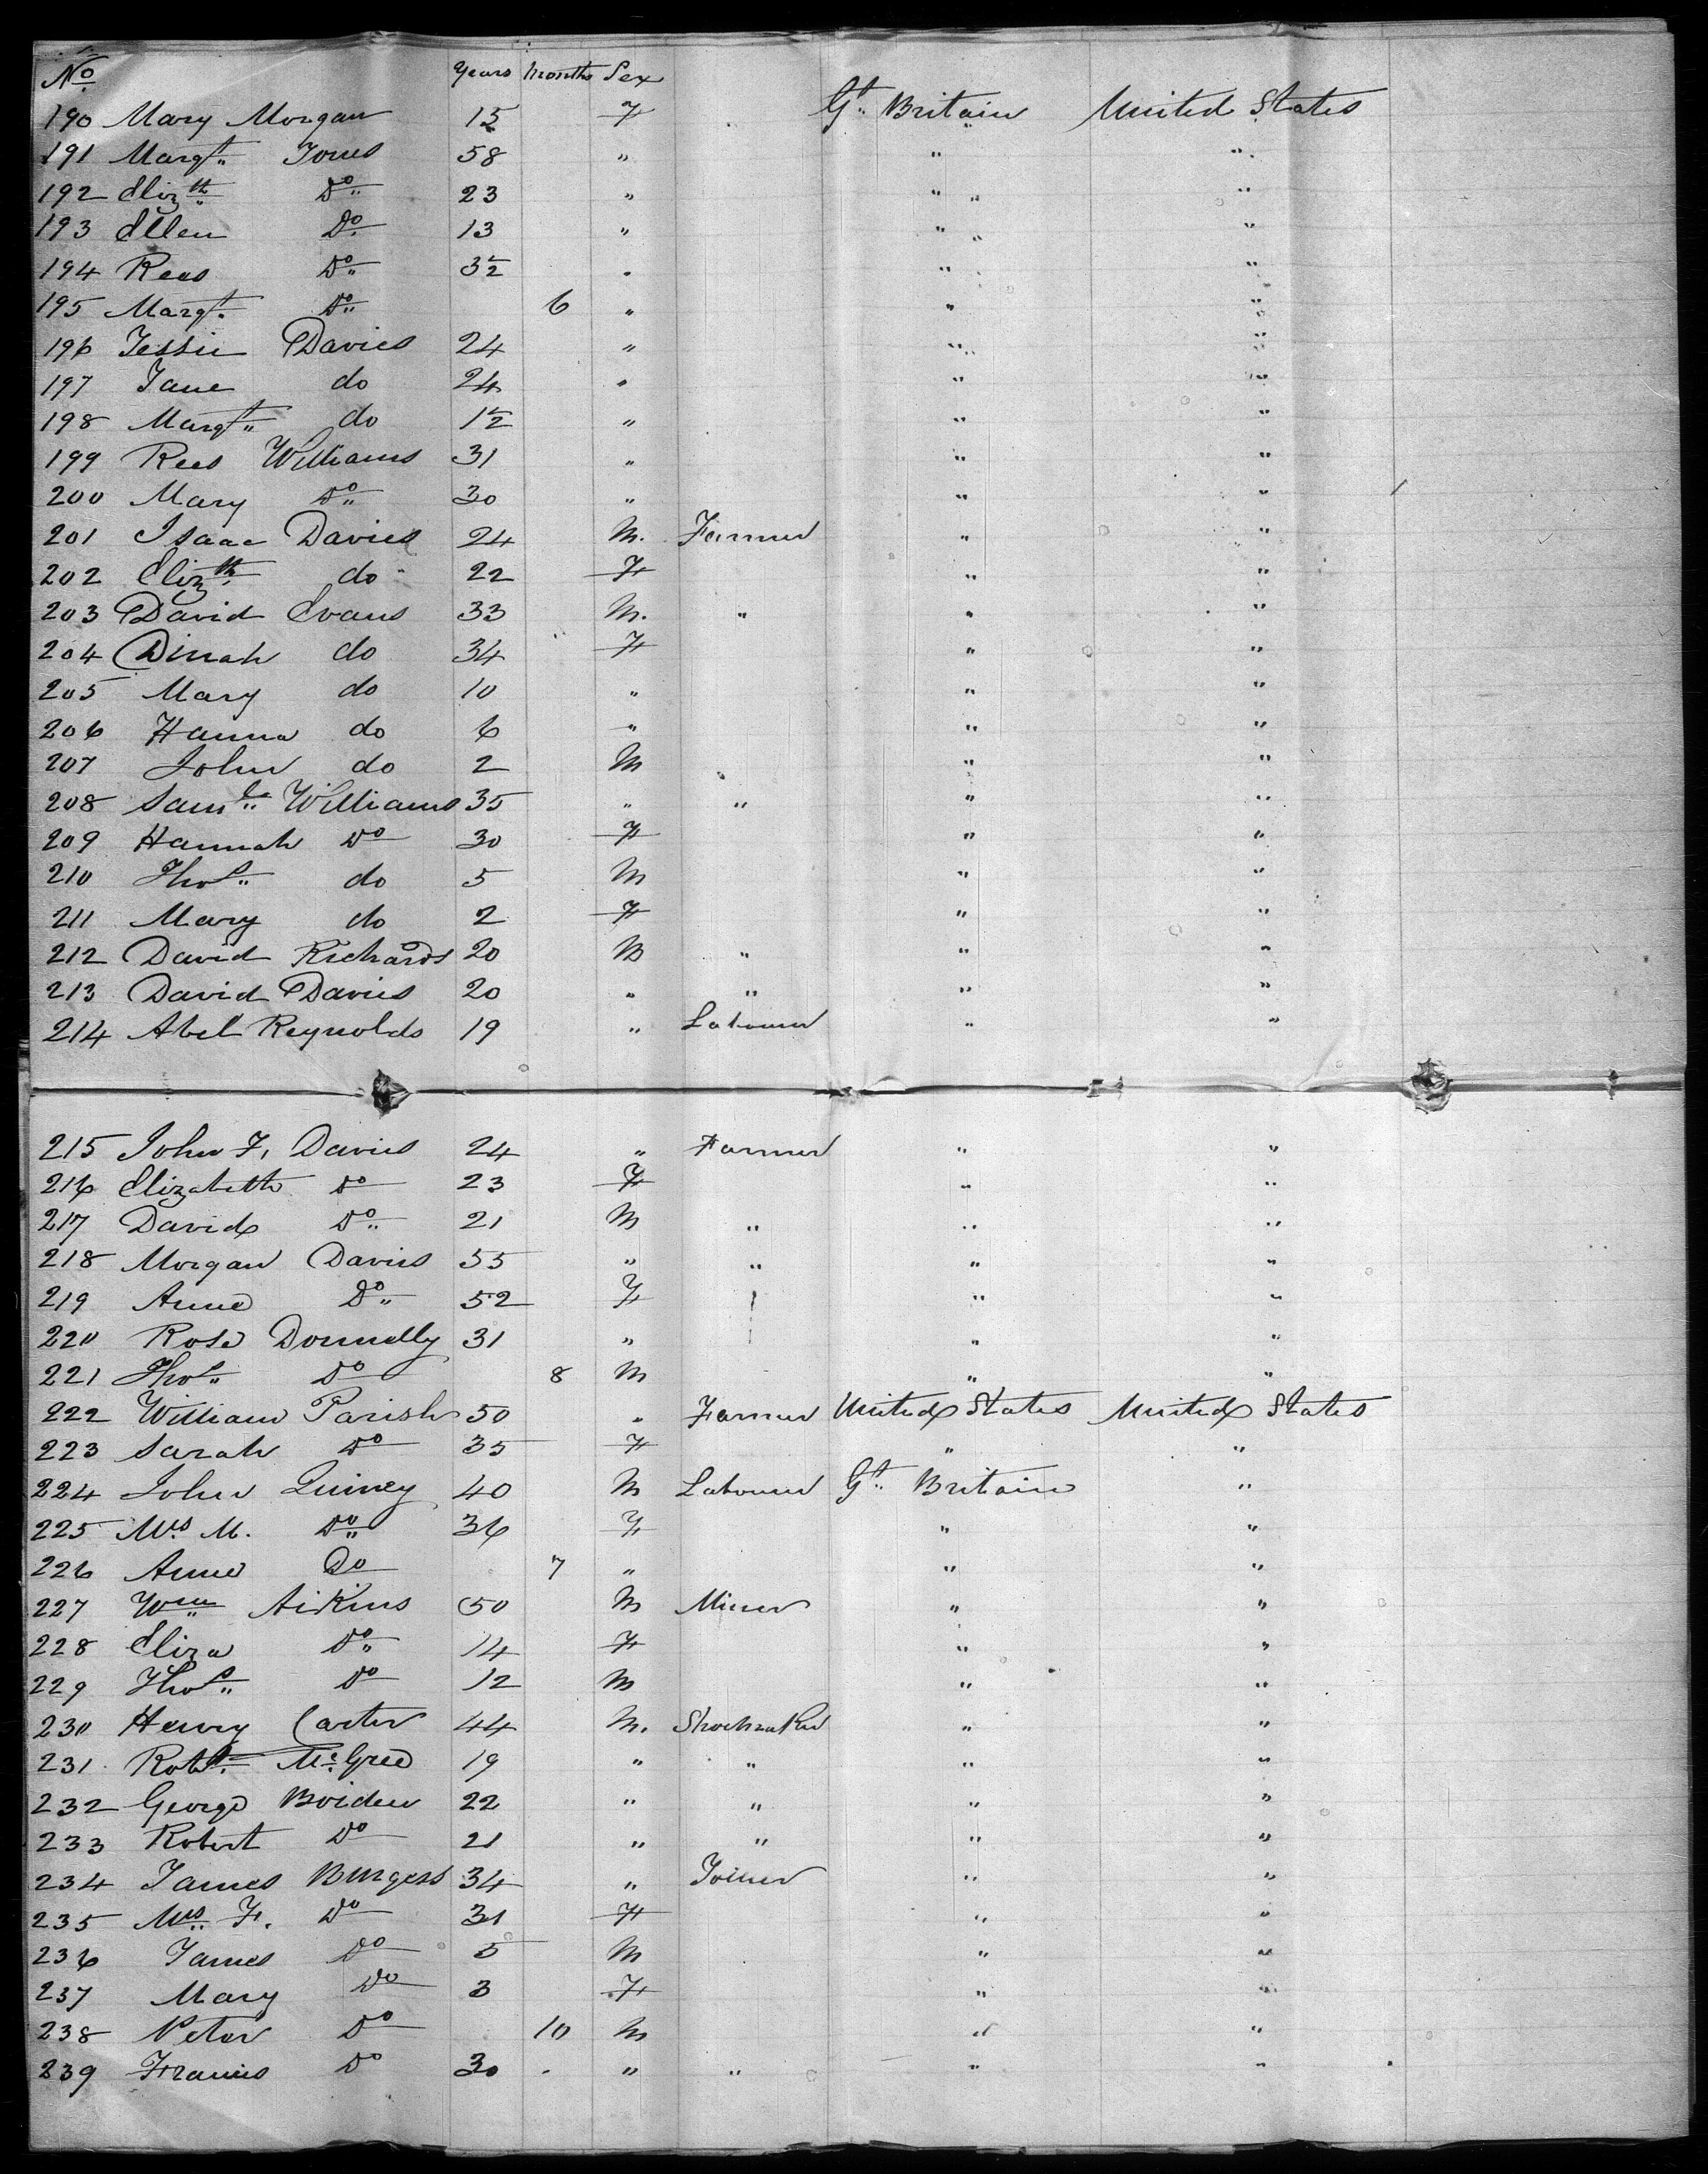 No Years Months Sex
190 Mary Morgan 15 F Gt. Britain United States
191 Margt. Jones 58 " " "
192 Elizth Do 23 " " "
193 Ellen Do 13 " " "
194 Rees Do 3½ " " "
195 Margt. Do 6 " " "
196 Jessie Davies 24 " " "
197 Jane do 24 " " "
198 Margt. do 1½ " " "
199 Rees Williams 31 " " "
200 Mary Do 30 " " "
201 Isaac Davies 24 M. Farmer " "
202 Elizth do 22 F " "
203 David Evans 33 M. " " "
204 Dinah do 34 F " "
205 Mary do 10 " " "
206 Hanna do 6 " " "
207 John do 2 M " "
208 Saml. Williams 35 " " " "
209 Hannah Do 30 F " "
210 Thos. do 5 M " "
211 Mary do 2 F " "
212 David Richards 20 M " " "
213 David Davies 20 " " " "
214 Abel Reynolds 19 " Labourer " "
215 John F. Davies 24 " Farmer " "
216 Elizabeth Do 23 F " "
217 David Do 21 M " " "
218 Morgan Davies 55 " " " "
219 Anne Do 52 F " "
220 Rose Donnelly 31 " " "
221 Thos. Do 8 M " "
222 William Parish 50 " Farmer United States United States
223 Sarah Do 35 F " "
224 John Quiney 40 M Labourer Gt. Britain "
225 Mrs M. Do 36 F " "
226 Anne Do 7 " " "
227 Wm Aikins 50 M Miner " "
228 Eliza Do 14 F " "
229 Thos. Do 12 M " "
230 Henry Carter 44 M. Shoemaker " "
231 Robt. McGree 19 " " " "
232 George Boiden 22 " " " "
233 Robert Do 21 " " " "
234 James Burgess 34 " Joiner " "
235 Mrs. F. Do 31 F " "
236 James Do 5 M " "
237 Mary Do 3 F " "
238 Peter Do 10 M " "
239 Francis Do 30 " " " "